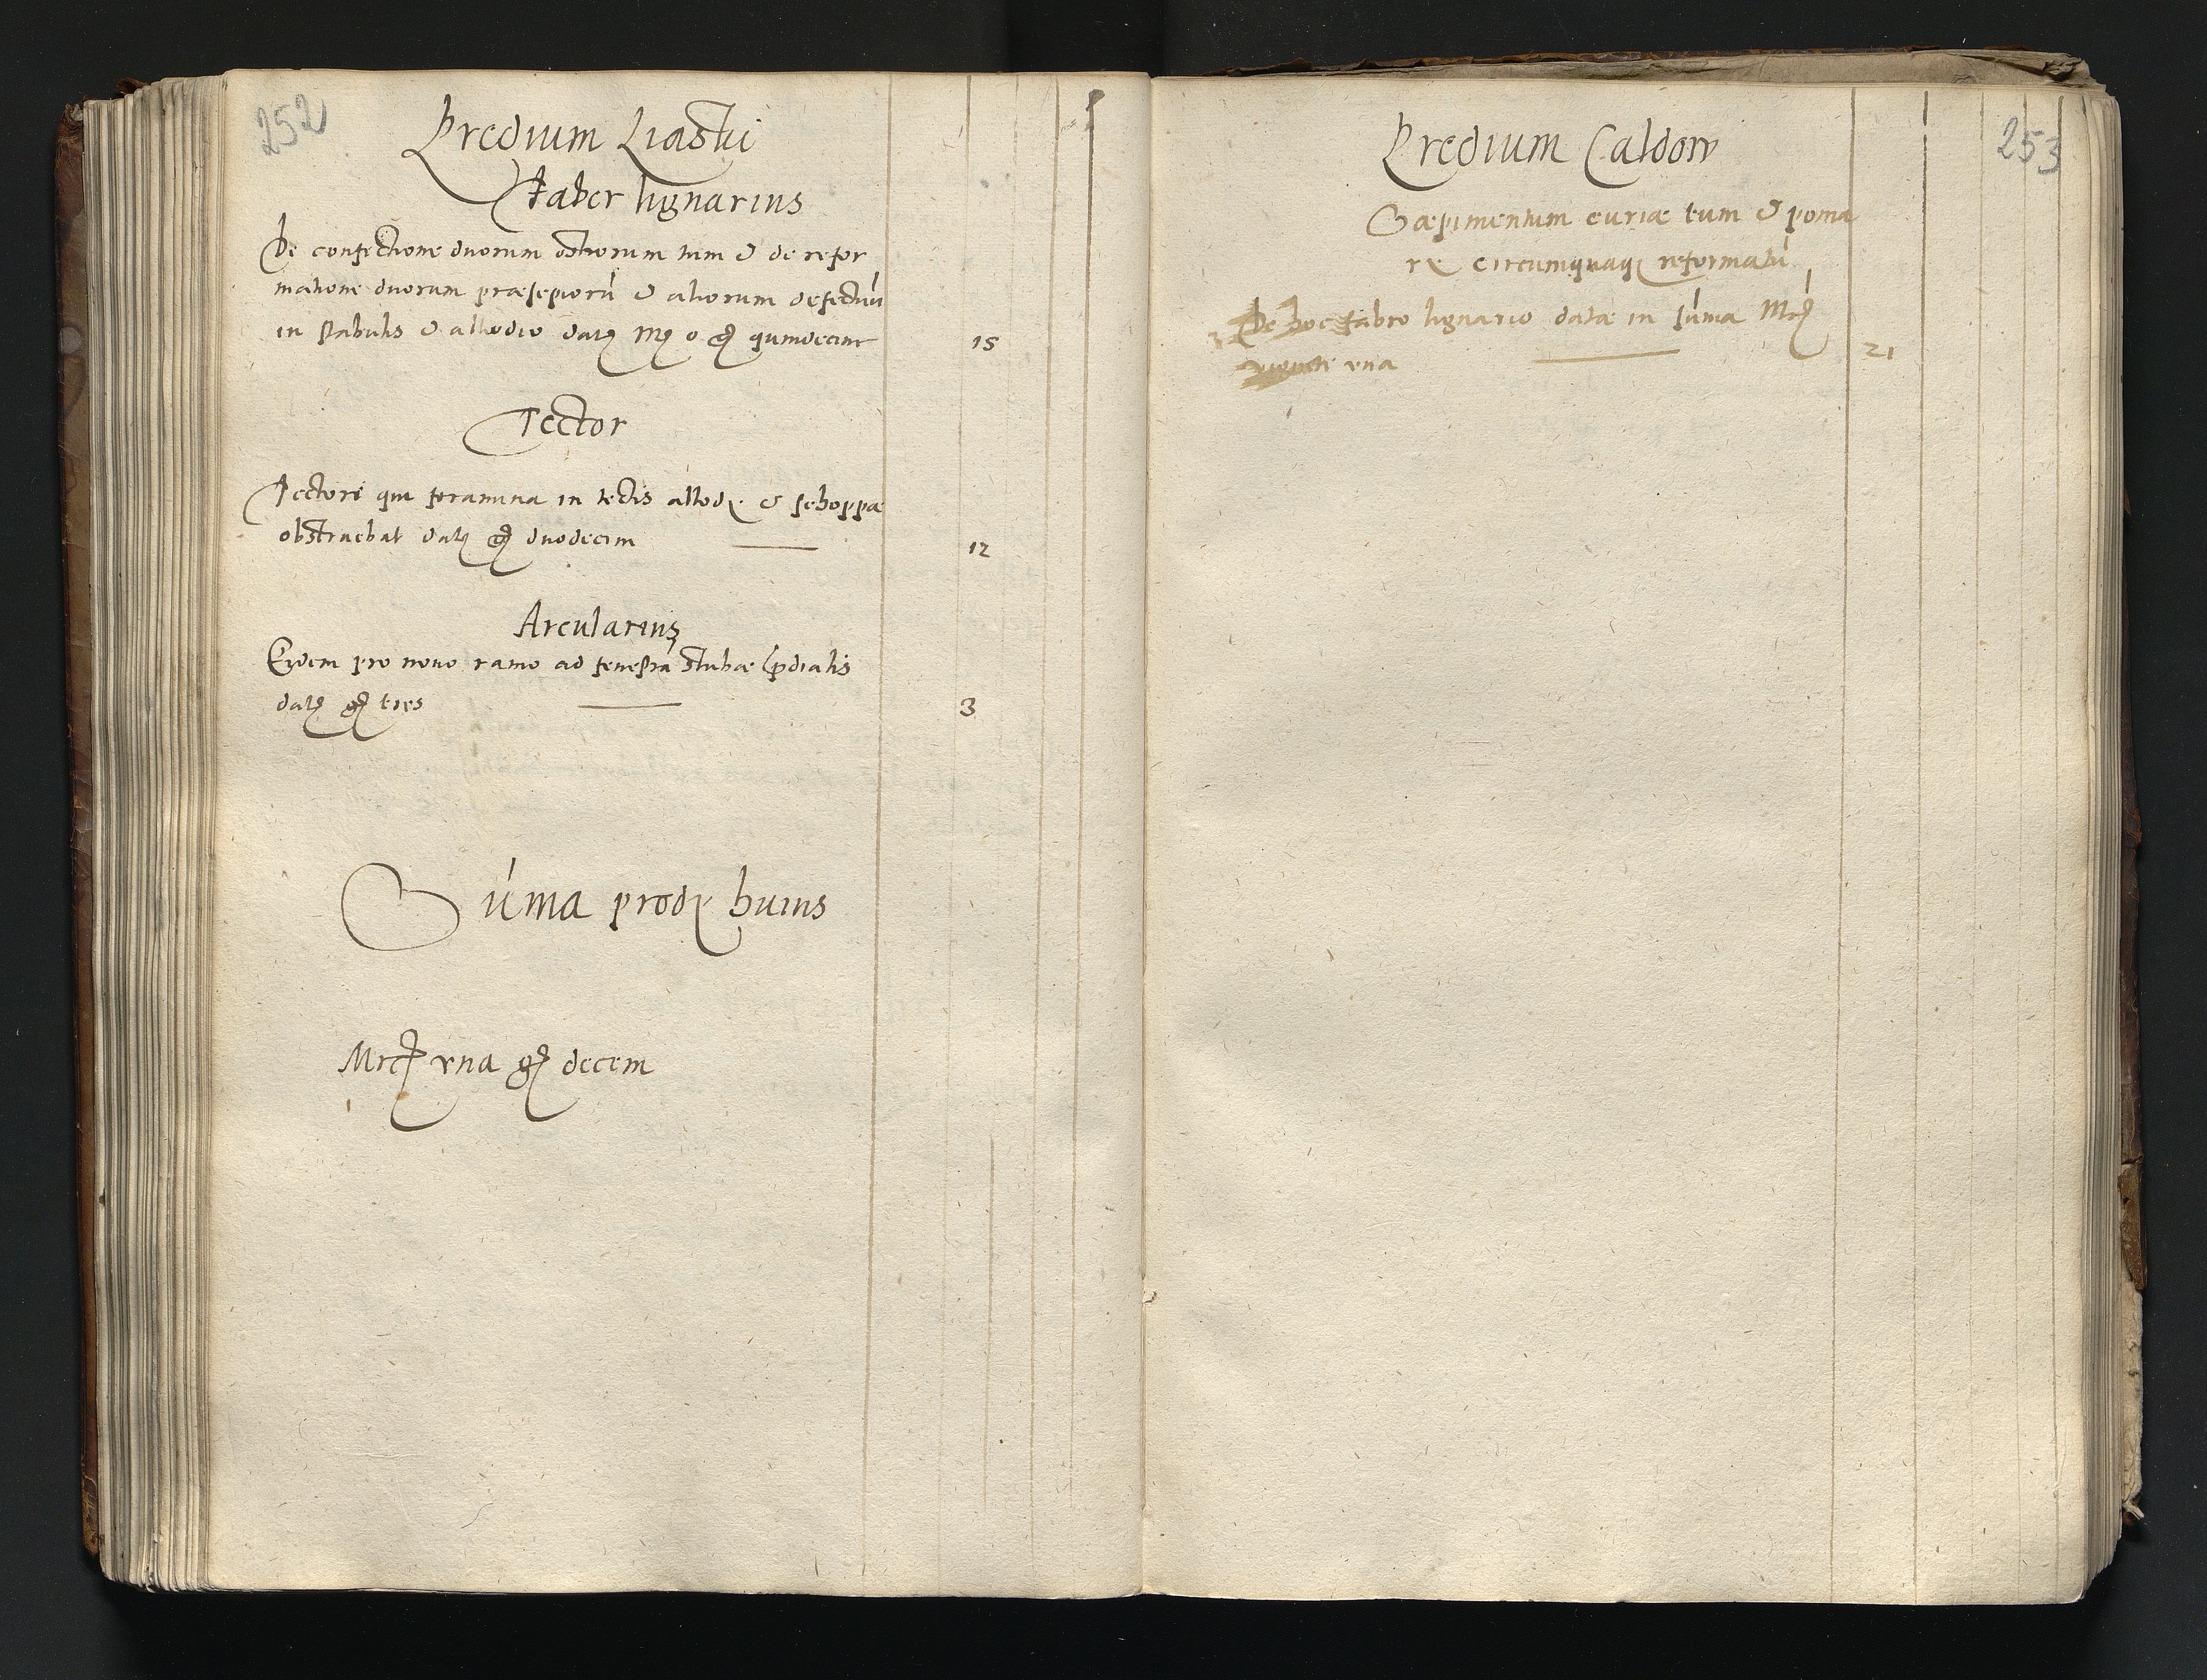 252
Predium Liastui
Faber lignarius
De confectione duorum ostiorum tum & de refor
matione duorum præsepiorū & aliorum defectuū
in stabulis & allodio datꝫ Mꝫ 0 gͬ quindecim
15
Tector
Tectori qui foramina in tectis allodꝭ & schoppæ
obstruebat datꝫ gͬ duodecim
12
Arcularius
Eidem pro nouo ramo ad fenestrā stubæ
datꝫ gͬ tres
3
Sūma prædꝭ huius
Mrcͬ vna gͬ decem
253
Predium Caldow
Sæpimentum curiæ tum & poma
re circumquaqꝫ reformatū
De hoc fabro lignario datæ in sūma Mrͬ
viginti vna
21